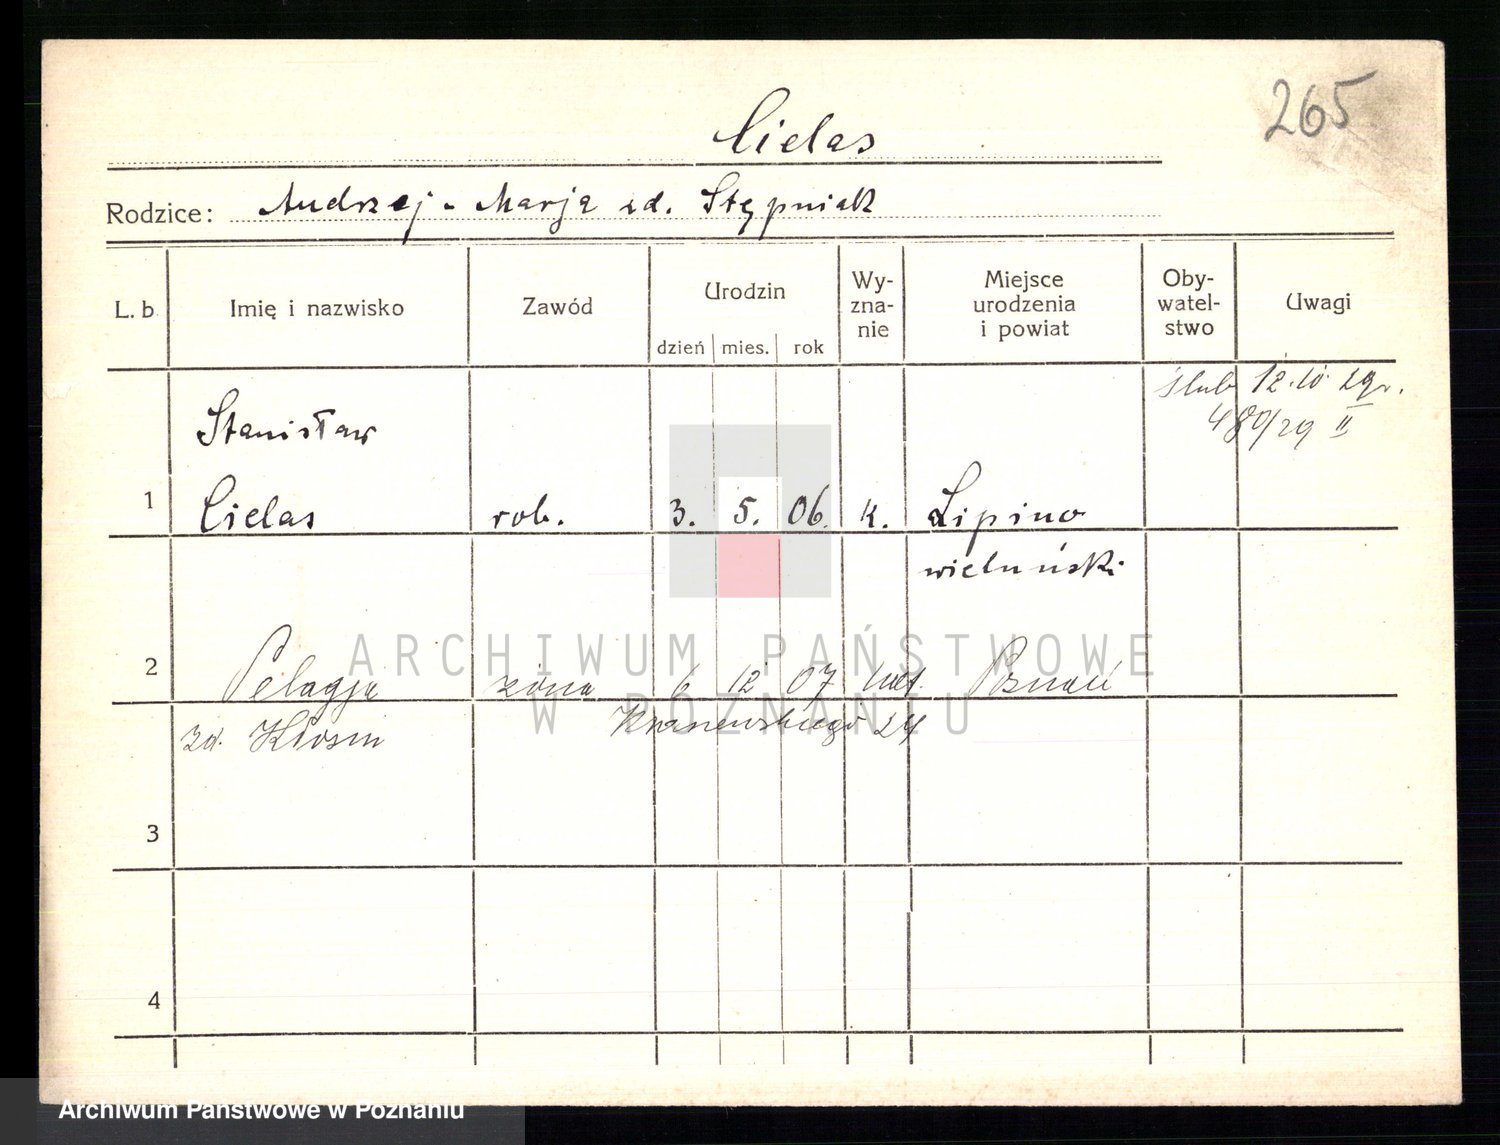 265
Cielas
Rodzice: Andrzej - Marja zd. Stępniak
L. b. Imię i nazwisko Zawód Urodzin dzień mies. rok Wy-zna-nie Miejsce urodzenia i powiat Oby-watel-stwo Uwagi
ślub 12.10 29r.
480/29 II
Stanisław
1 Cielas rob. 3. 5. 06. k. Lipino
wieluński
2 Pelagja żona 6 12 07 kat. Poznań
zd. 24
3
4
ARCHIWUM PAŃSTWOWE
W POZNANIU
Archiwum Państwowe w Poznaniu